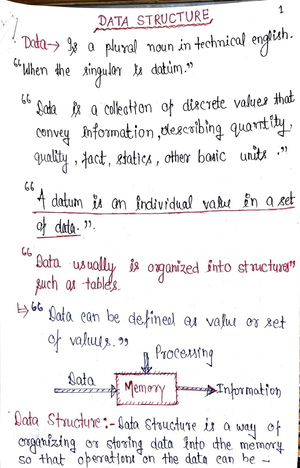 DATA STRUCTURE
1
Data→ Is a plural noun in technical english.
"When the singular is datum."
"Data is a collection of discrete values that
convey Information, describing quantity,
quality, fact, statics, other basic units."
"A datum is an individual value in a set
of data.".
"Data usually is organized into structures"
such as tables.
↳ "Data can be defined as value or set
of values."
Processing
Data
Memory
Information
Data Structure:- Data Structure is a way of
organizing or storing data into the memory
so that operations on the data can be -